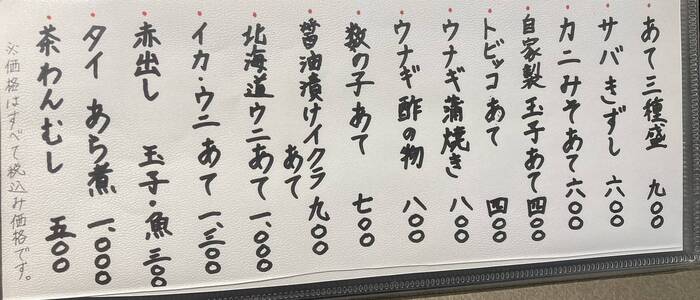 あて三種盛 九〇〇
サバきずし 六〇〇
カニみそあて 六〇〇
自家製玉子あて 四〇〇
トビッコあて 四〇〇
ウナギ蒲焼き 八〇〇
ウナギ酢の物 八〇〇
数の子あて 七〇〇
醤油漬けイクラあて 九〇〇
北海道ウニあて 一、〇〇〇
イカ・ウニあて 一、三〇〇
赤出し 玉子・魚 三〇〇
タイ あら煮 一、〇〇〇
茶わんむし 五〇〇
※価格はすべて税込み価格です。